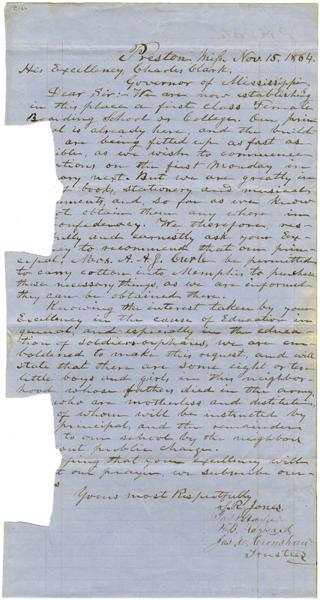 Preston Miss. Nov. 15. 1864.
His Excellency Charles Clark,
Governor of Mississippi,
Dear Sir:- We are now establishing
in this place a first class Female
Boarding School or College. Our prin
al is already here, and the build
are being fitted up as fast as
ible, as we wish to commence
tions on the first Monday in
ary next. But we are greatly in
book, stationery and musical
ments, and, so far as we know
not obtain them any where in
onfedency. We therefore, res
ully and earnestly ask your Ex
to recommend that our prin
cipal, Mrs. A. A. J. be permitted
to carry cotton into Memphis to purchase
those necessary things, as we are informed
they can be obtained there.
Knowing the interest taken by your
Excellency in the cause of Education in
general, and especially in the educa
tion of soldiers orphans, we are em
boldened to make this request, and will
state that there are some eight or ten
little boys and girls, in this neighbor
hood whose fathers died in the army,
who are motherless and destitute,
of whom will be instructed by
principal, and the remainder
to our school by the neighbors
out public charge.
ping that your excellency will
t our prayer, we subscribe our
s
Yours most Respectfully
R. Jones.
Jas. Crenshaw
Trustees